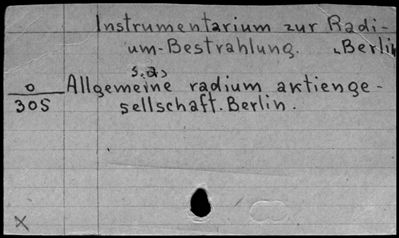 Instrumentarium zur Radi-
um-Bestrahlung. Berlin
s.a.
O Allgemeine radium aktienge-
305 sellschaft. Berlin.
X